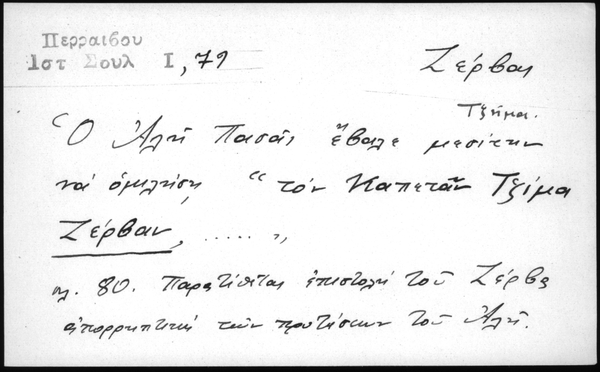 Περραιβου
Ιστ Σουλ Ι, 79
Ζέρβας
Τζήμα.
Ὁ Ἀλῆ Πασᾶς ἔβαλε μεσίτην
νά ὁμιλήσῃ "τόν Καπετᾶν Τζίμα
Ζέρβαν, ..... "
σελ. 80. Παρατίθεται ἐπιστολή τοῦ Ζέρβα
ἀπορριπτική τῶν προτάσεων τοῦ Ἀλῆ.